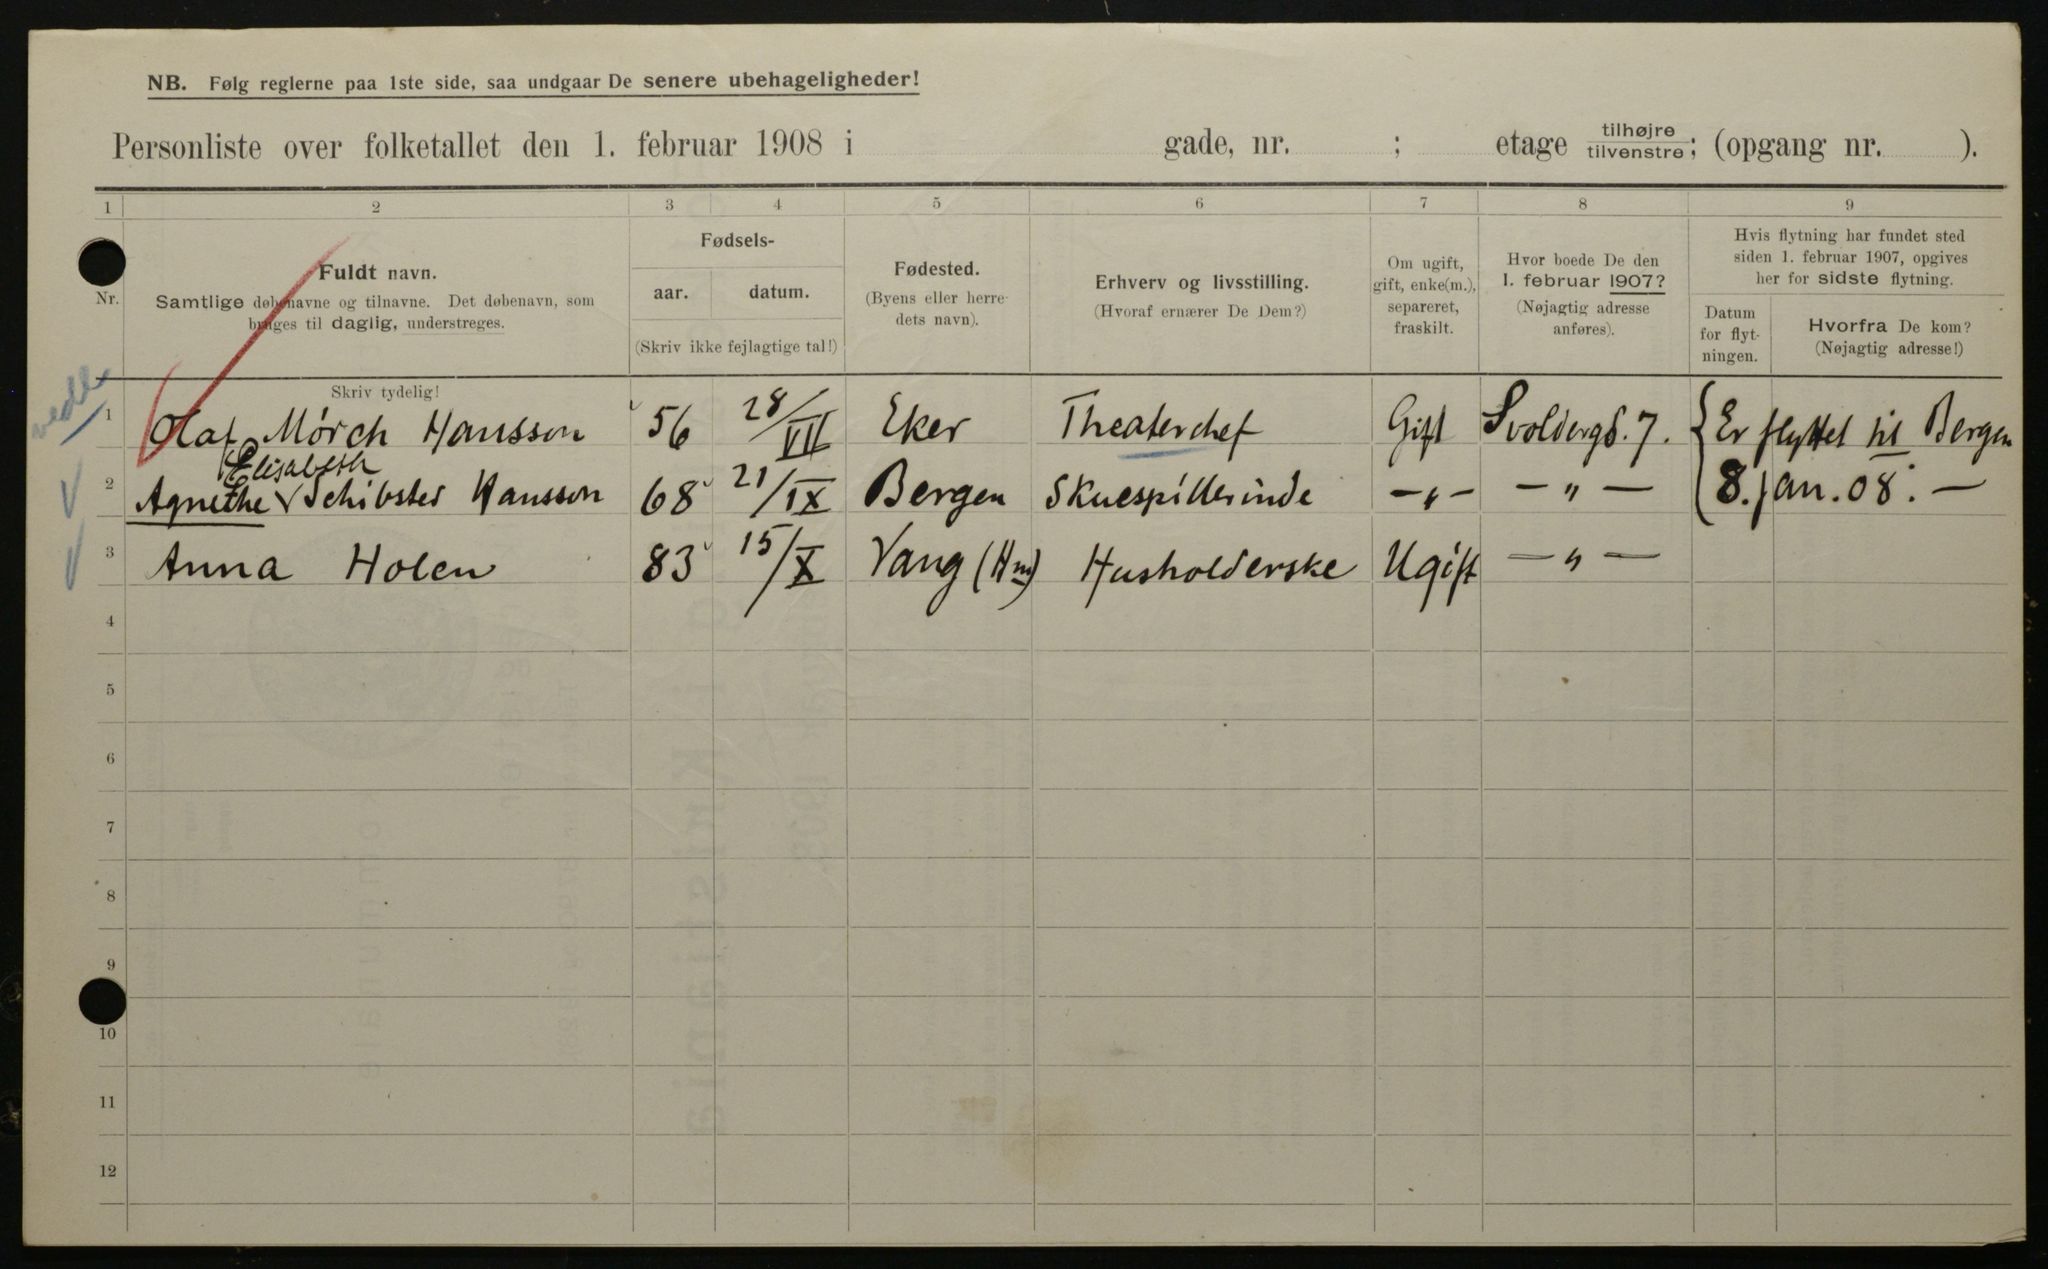 NB. Følg reglerne paa 1ste side, saa undgaar De senere ubehageligheder!
Personliste over folketallet den 1. februar 1908 i gade, nr. ; etage tilhøjre tilvenstre; (opgang nr. ).
1 2 3 4 5 6 7 8 9
Nr.
Fuldt navn.
Samtlige døbenavne og tilnavne. Det døbenavn, som
bruges til daglig, understreges.
Skriv tydelig!
Fødsels-
aar. datum.
(Skriv ikke fejlagtige tal!)
Fødested.
(Byens eller herre-
dets navn).
Erhverv og livsstilling.
(Hvoraf ernærer De Dem?)
Om ugift,
gift, enke(m.),
separeret,
fraskilt.
Hvor boede De den
1. februar 1907?
(Nøjagtig adresse
anføres).
Hvis flytning har fundet sted
siden 1. februar 1907, opgives
her for sidste flytning.
Datum
for flyt-
ningen.
Hvorfra De kom?
(Nøjagtig adresse!)
1 Olaf Mörch Hansson 56 28/VII Eker Theaterchef Gift Svoldergd. 7. Er flyttet til Bergen
Elisabeth
2 Agnethe Schibsted Hansson 68 21/IX Bergen Skuespillerinde – „ – – „ – 8. jan. 08. –
3 Anna Holen 83 15/X Vang (Hm) Husholderske Ugift – „ –
4
5
6
7
8
9
10
11
12